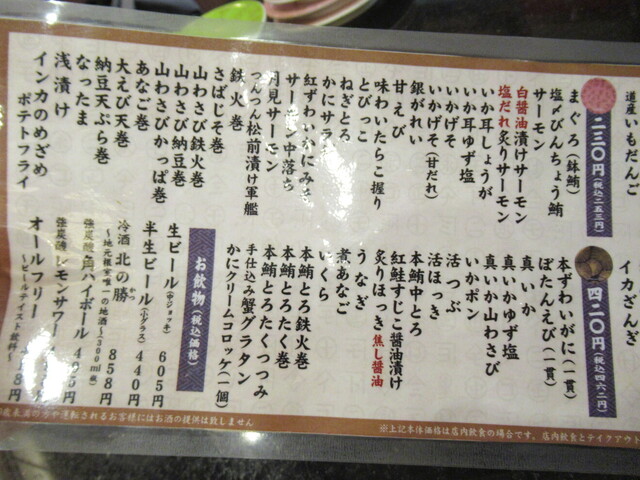 道産いもだんご
二三〇円(税込二五三円)
まぐろ(鉢鮪)
塩〆びんちょう鮪
サーモン
白醤油漬けサーモン
塩だれ炙りサーモン
いか耳しょうが
いか耳ゆず塩
いかげそ
いかげそ(甘だれ)
銀がれい
甘えび
味わいたらこ握り
とびっこ
ねぎとろ
かにサラ
紅ずわいかにみそ
サーモン中落ち
月見サーモン
つんつん松前漬け軍艦
鉄火巻
さばじそ巻
山わさび鉄火巻
山わさび納豆巻
山わさびかっぱ巻
あなご巻
大えび天巻
納豆天ぷら巻
なったま
浅漬け
インカのめざめ
ポテトフライ
イカざんぎ
四二〇円(税込四六二円)
本ずわいがに(一貫)
ぼたんえび(一貫)
真いか
真いかゆず塩
真いか山わさび
いかポン
活つぶ
活ほっき
本鮪中とろ
紅鮭すじこ醤油漬け
炙りほっき焦し醤油
うなぎ
煮あなご
いくら
本鮪とろ鉄火巻
本鮪とろたく巻
本鮪とろたくつつみ
手仕込み蟹グラタン
かにクリームコロッケ(一個)
お飲物(税込価格)
生ビール(中ジョッキ) 605円
半生ビール(小グラス) 440円
冷酒 北の勝 858円
かつ
~地元根室唯一の地酒~(300ml瓶)
強炭酸角ハイボール
強炭酸レモンサワー
オールフリー
~ビールテイスト飲料~
※上記本体価格は店内飲食の場合です。店内飲食とテイクアウト
運転されるお客様にはお酒の提供は致しません